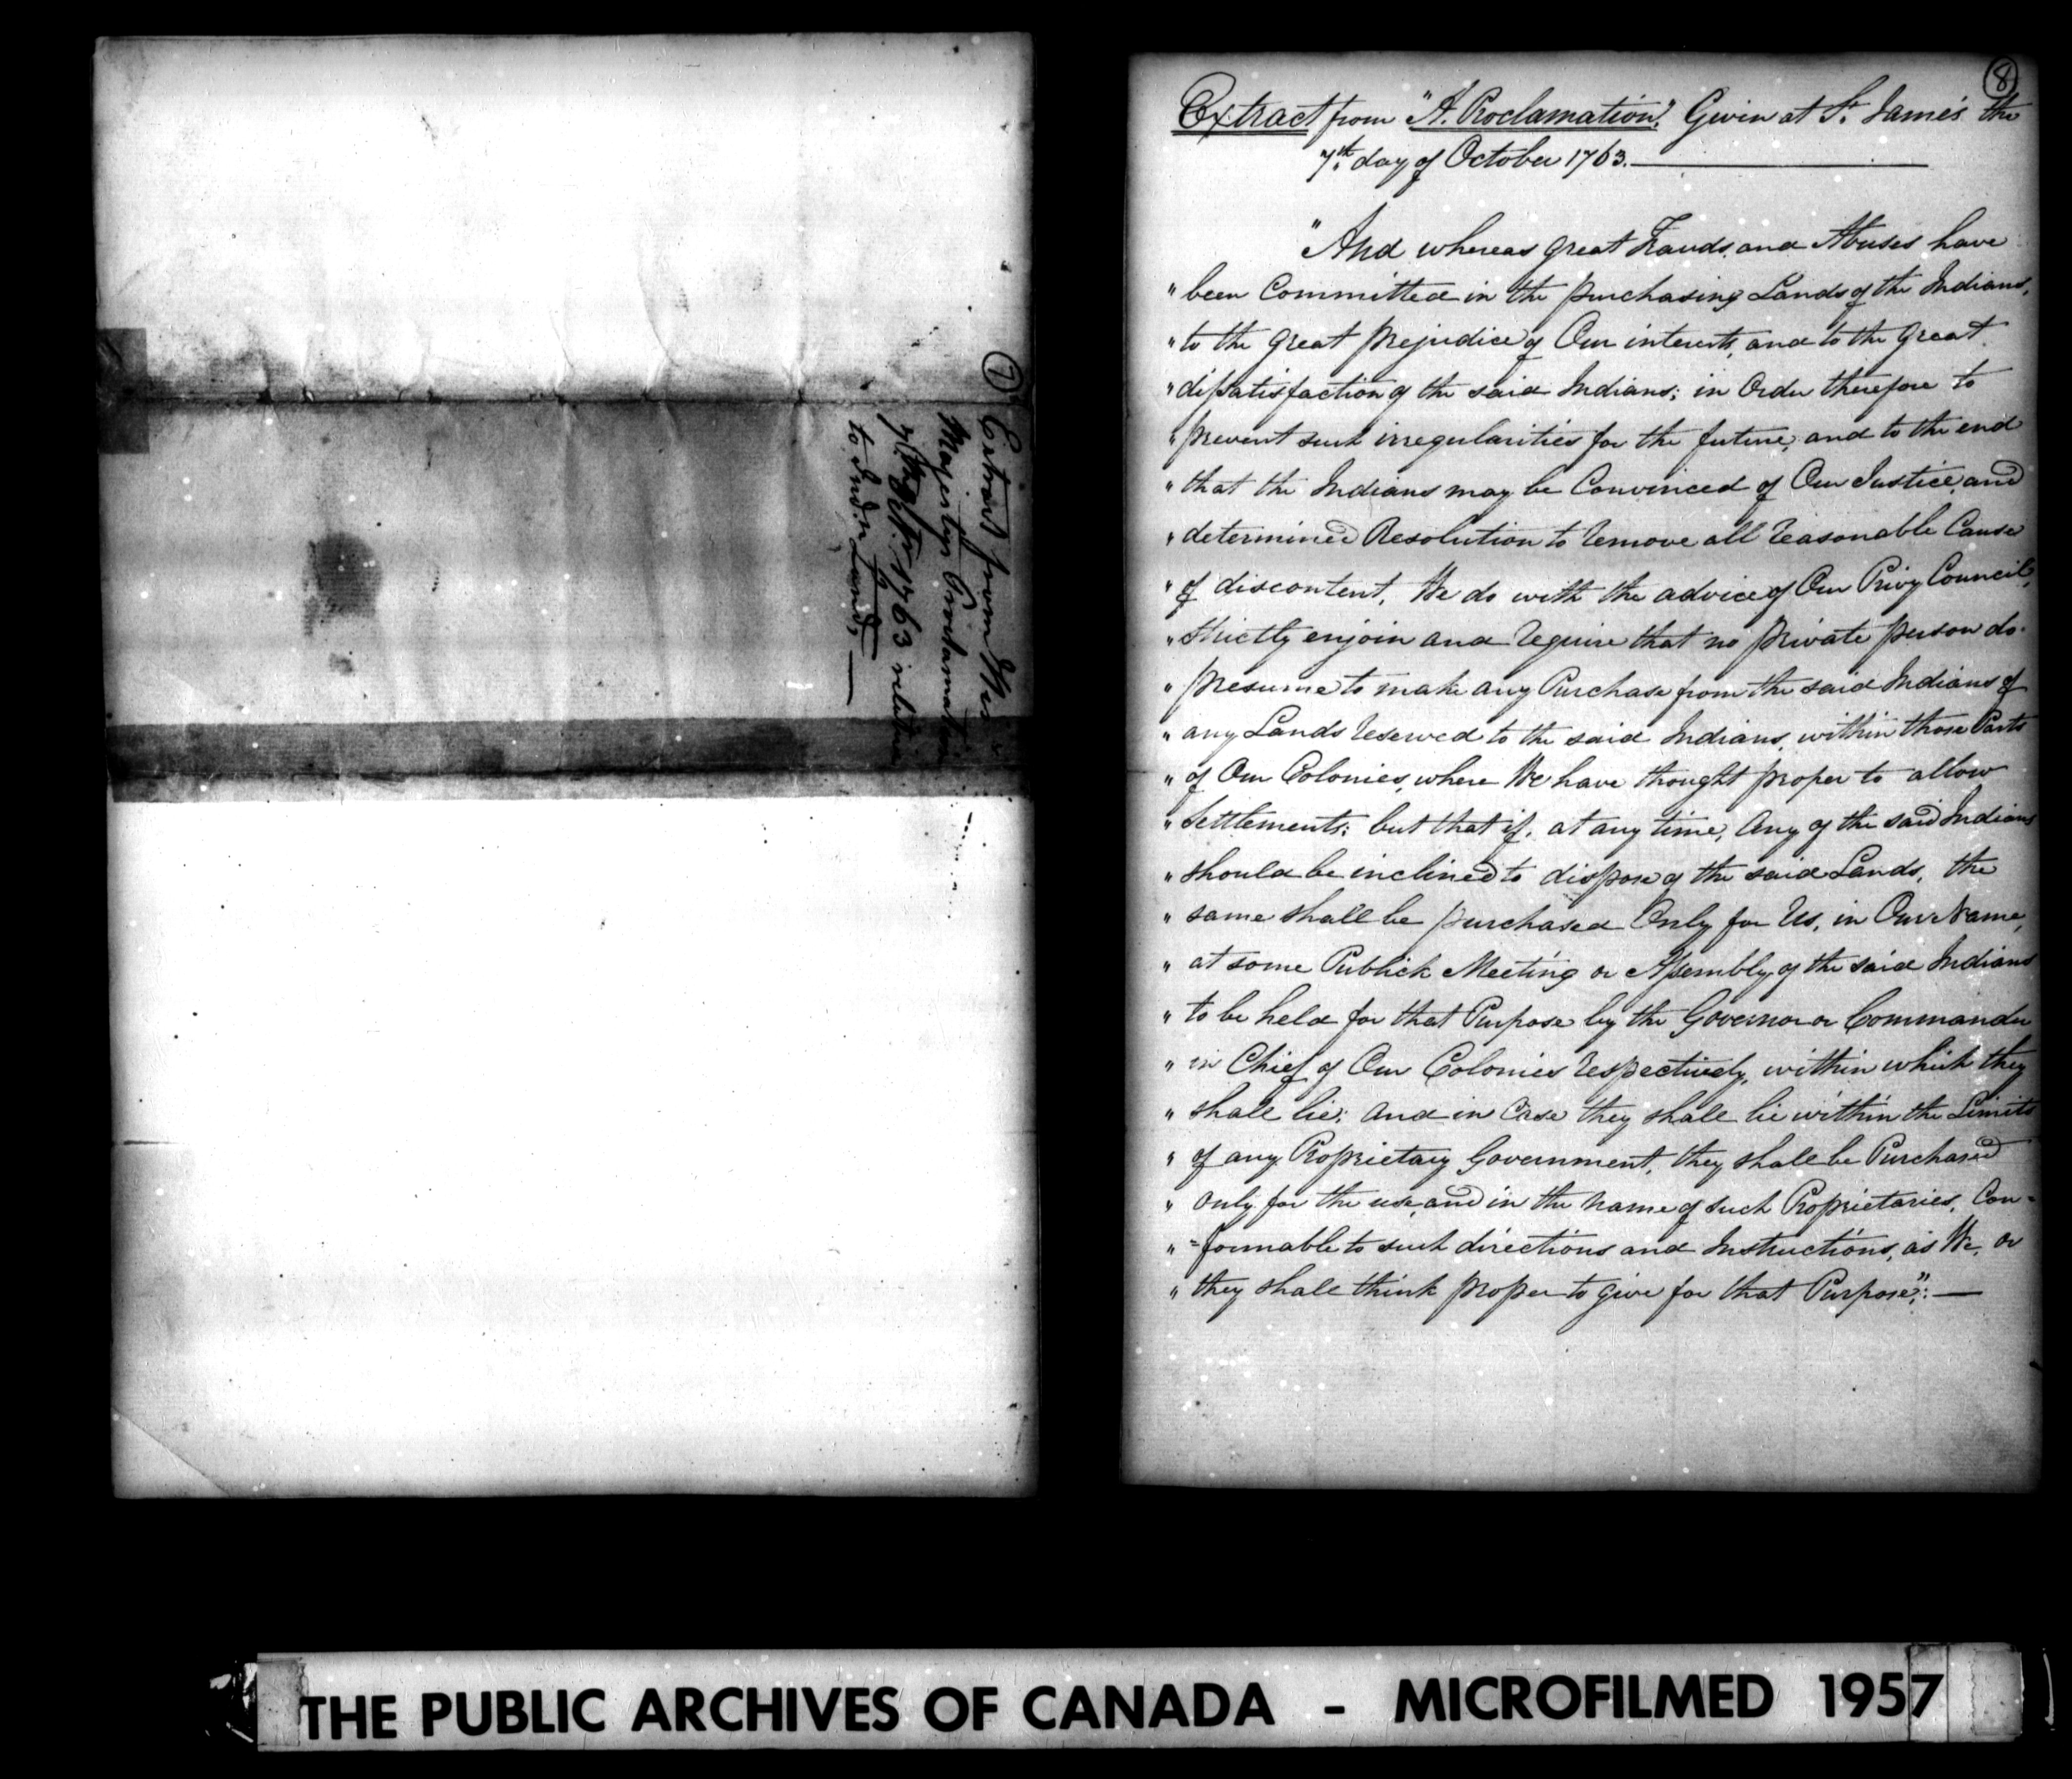 7
Extract from His
Majestys Proclamation
7th Octr. 1763 relative
to Indn. Lands,
8
Extract from "A. Proclamation." Given at St. James's the
7th. day of October 1763.
"And whereas great Frauds and Abuses have
" been Committed in the purchasing Lands of the Indians,
" to the great prejudice of Our interests, and to the great
" dissatisfaction of the said Indians; in Order therefore to
" prevent such irregularities for the future, and to the end
" that the Indians may be Convinced of Our Justice, and
" determined Resolution to remove all reasonable Cause
" of discontent, We do with the advice of Our Privy Council,
" strictly enjoin and require that no private person do
" presume to make any Purchase from the said Indians of
" any Lands reserved to the said Indians, within those Parts
" of Our Colonies, where We have thought proper to allow
" Settlements; but that if, at any time, Any of the said Indians
" should be inclined to dispose of the said Lands, the
" same shall be purchased Only for Us, in Our Name,
" at some Publick Meeting or Assembly of the said Indians
" to be held for that Purpose by the Governor or Commander
" in Chief of Our Colonies respectively, within which they
" shall lie; and in Case they shall lie within the Limits
" of any Proprietary Government, they shall be Purchased
" only for the use, and in the name of such Proprietaries, Con=
" =formable to such directions and Instructions, as We, or
" they shall think proper to give for that Purpose":
THE PUBLIC ARCHIVES OF CANADA - MICROFILMED 1957